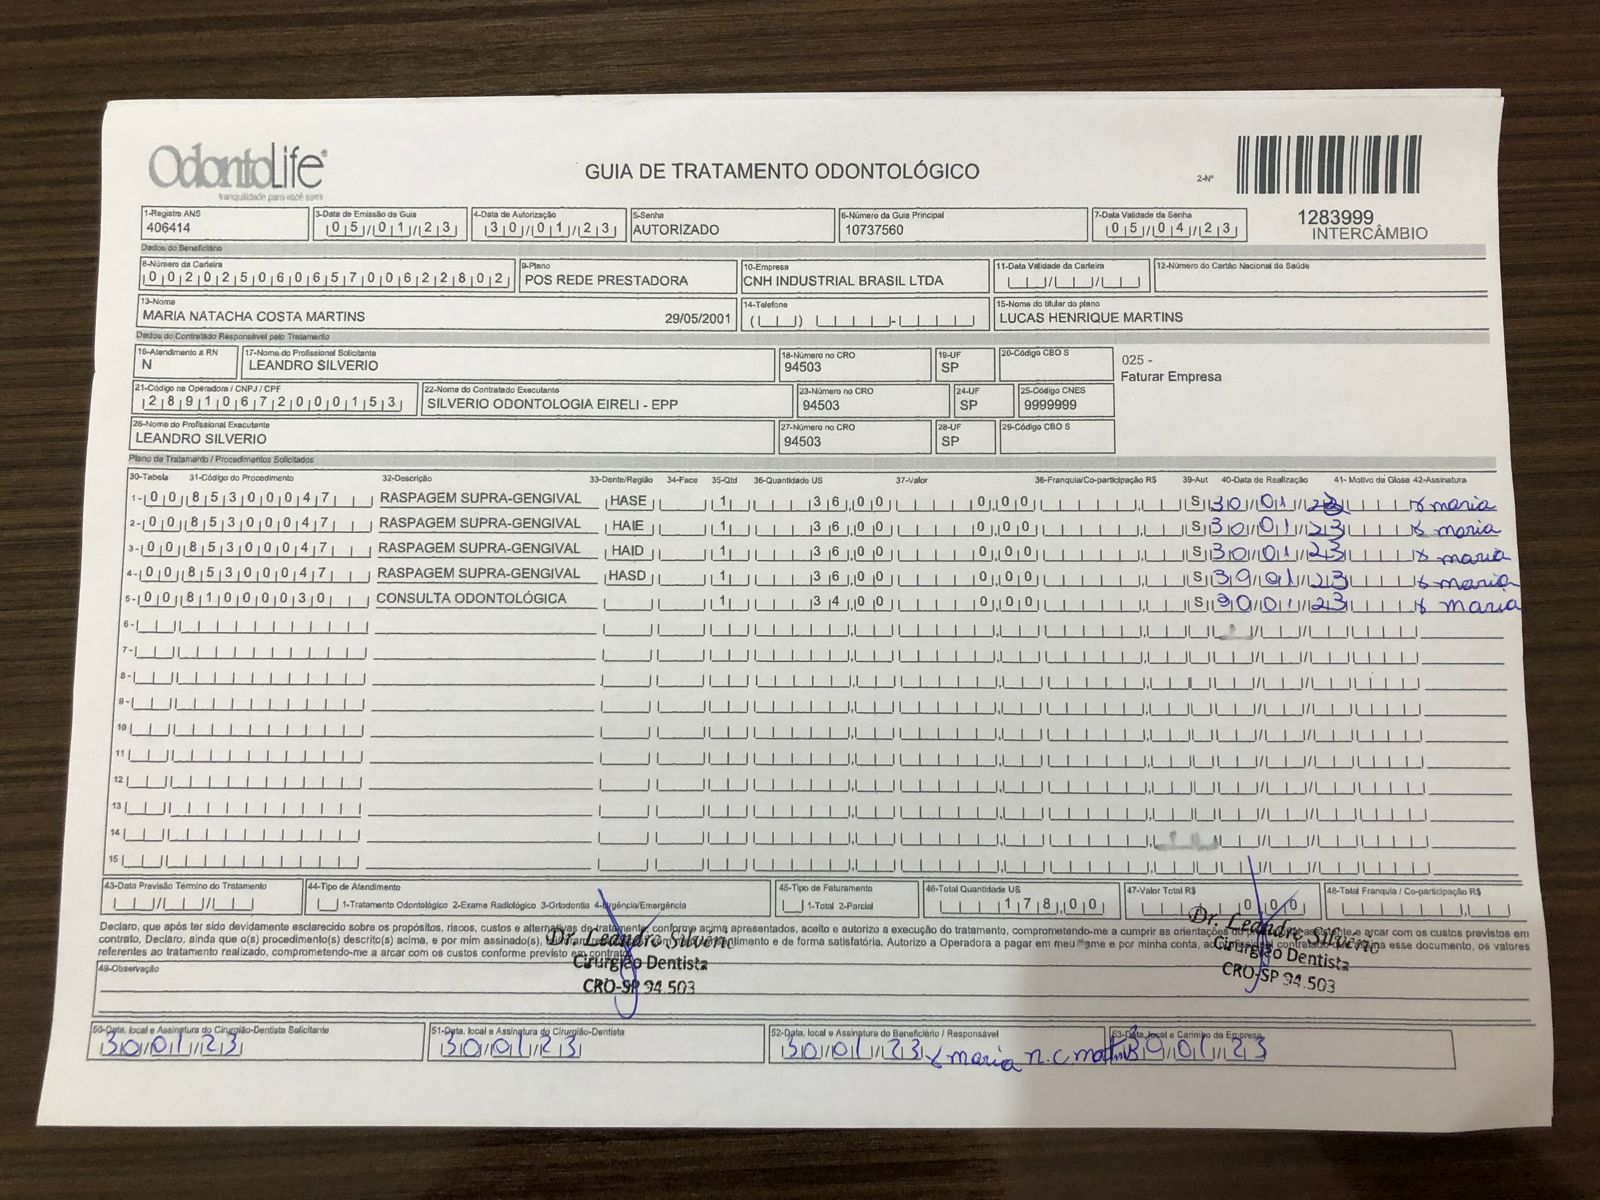 OdontoLife®
tranquilidade para você sorrir
GUIA DE TRATAMENTO ODONTOLÓGICO
2-Nº
1283999
INTERCÂMBIO
1-Registro ANS 3-Data de Emissão da Guia 4-Data de Autorização 5-Senha 6-Número da Guia Principal 7-Data Validade da Senha
406414 05/01/23 30/01/23 AUTORIZADO 10737560 05/04/23
Dados do Beneficiário
8-Número da Carteira 9-Plano 10-Empresa 11-Data Validade da Carteira 12-Número do Cartão Nacional de Saúde
00202506065700622802 POS REDE PRESTADORA CNH INDUSTRIAL BRASIL LTDA
13-Nome 14-Telefone 15-Nome do titular do plano
MARIA NATACHA COSTA MARTINS 29/05/2001 LUCAS HENRIQUE MARTINS
Dados do Contratado Responsável pelo Tratamento
16-Atendimento a RN 17-Nome do Profissional Solicitante 18-Número no CRO 19-UF 20-Código CBO S
N LEANDRO SILVERIO 94503 SP
025 -
Faturar Empresa
21-Código na Operadora / CNPJ / CPF 22-Nome do Contratado Executante 23-Número no CRO 24-UF 25-Código CNES
28910672000153 SILVERIO ODONTOLOGIA EIRELI - EPP 94503 SP 9999999
26-Nome do Profissional Executante 27-Número no CRO 28-UF 29-Código CBO S
LEANDRO SILVERIO 94503 SP
Plano de Tratamento / Procedimentos Solicitados
30-Tabela 31-Código do Procedimento 32-Descrição 33-Dente/Região 34-Face 35-Qtd 36-Quantidade US 37-Valor 38-Franquia/Co-participação R$ 39-Aut 40-Data de Realização 41- Motivo da Glosa 42-Assinatura
1- 00 85300047 RASPAGEM SUPRA-GENGIVAL HASE 1 36,00 0,00 S 30/01/23 x maria
2- 00 85300047 RASPAGEM SUPRA-GENGIVAL HAIE 1 36,00 0,00 S 30/01/23 x maria
3- 00 85300047 RASPAGEM SUPRA-GENGIVAL HAID 1 36,00 0,00 S 30/01/23 x maria
4- 00 85300047 RASPAGEM SUPRA-GENGIVAL HASD 1 36,00 0,00 S 30/01/23 x maria
5- 00 81000030 CONSULTA ODONTOLÓGICA 1 34,00 0,00 S 30/01/23 x maria
6-
7-
8-
9-
10
11
12
13
14
15
43-Data Previsão Término do Tratamento 44-Tipo de Atendimento 45-Tipo de Faturamento 46-Total Quantidade US 47-Valor Total R$ 48-Total Franquia / Co-participação R$
1-Tratamento Odontológico 2-Exame Radiológico 3-Ortodontia 4-Urgência/Emergência 1-Total 2-Parcial 178,00 0,00
Declaro, que após ter sido devidamente esclarecido sobre os propósitos, riscos, custos e alternativas de tratamento, conforme acima apresentados, aceito e autorizo a execução do tratamento, comprometendo-me a cumprir as orientações e arcar com os custos previstos em
contrato, Declaro, ainda que o(s) procedimento(s) descrito(s) acima, e por mim assinado(s), e de forma satisfatória. Autorizo a Operadora a pagar em meu nome e por minha conta, ao contratado esse documento, os valores
referentes ao tratamento realizado, comprometendo-me a arcar com os custos conforme previsto em contrato.
Dr. Leandro Silvério
Cirurgião Dentista
CRO-SP 94.503
Dr. Leandro Silvério
Cirurgião Dentista
CRO-SP 94.503
49-Observação
50-Data, local e Assinatura do Cirurgião-Dentista Solicitante 51-Data, local e Assinatura do Cirurgião-Dentista 52-Data, local e Assinatura do Beneficiário / Responsável 53-Data, local e Carimbo da Empresa
30/01/23 30/01/23 30/01/23 x maria n.c. martins 30/01/23